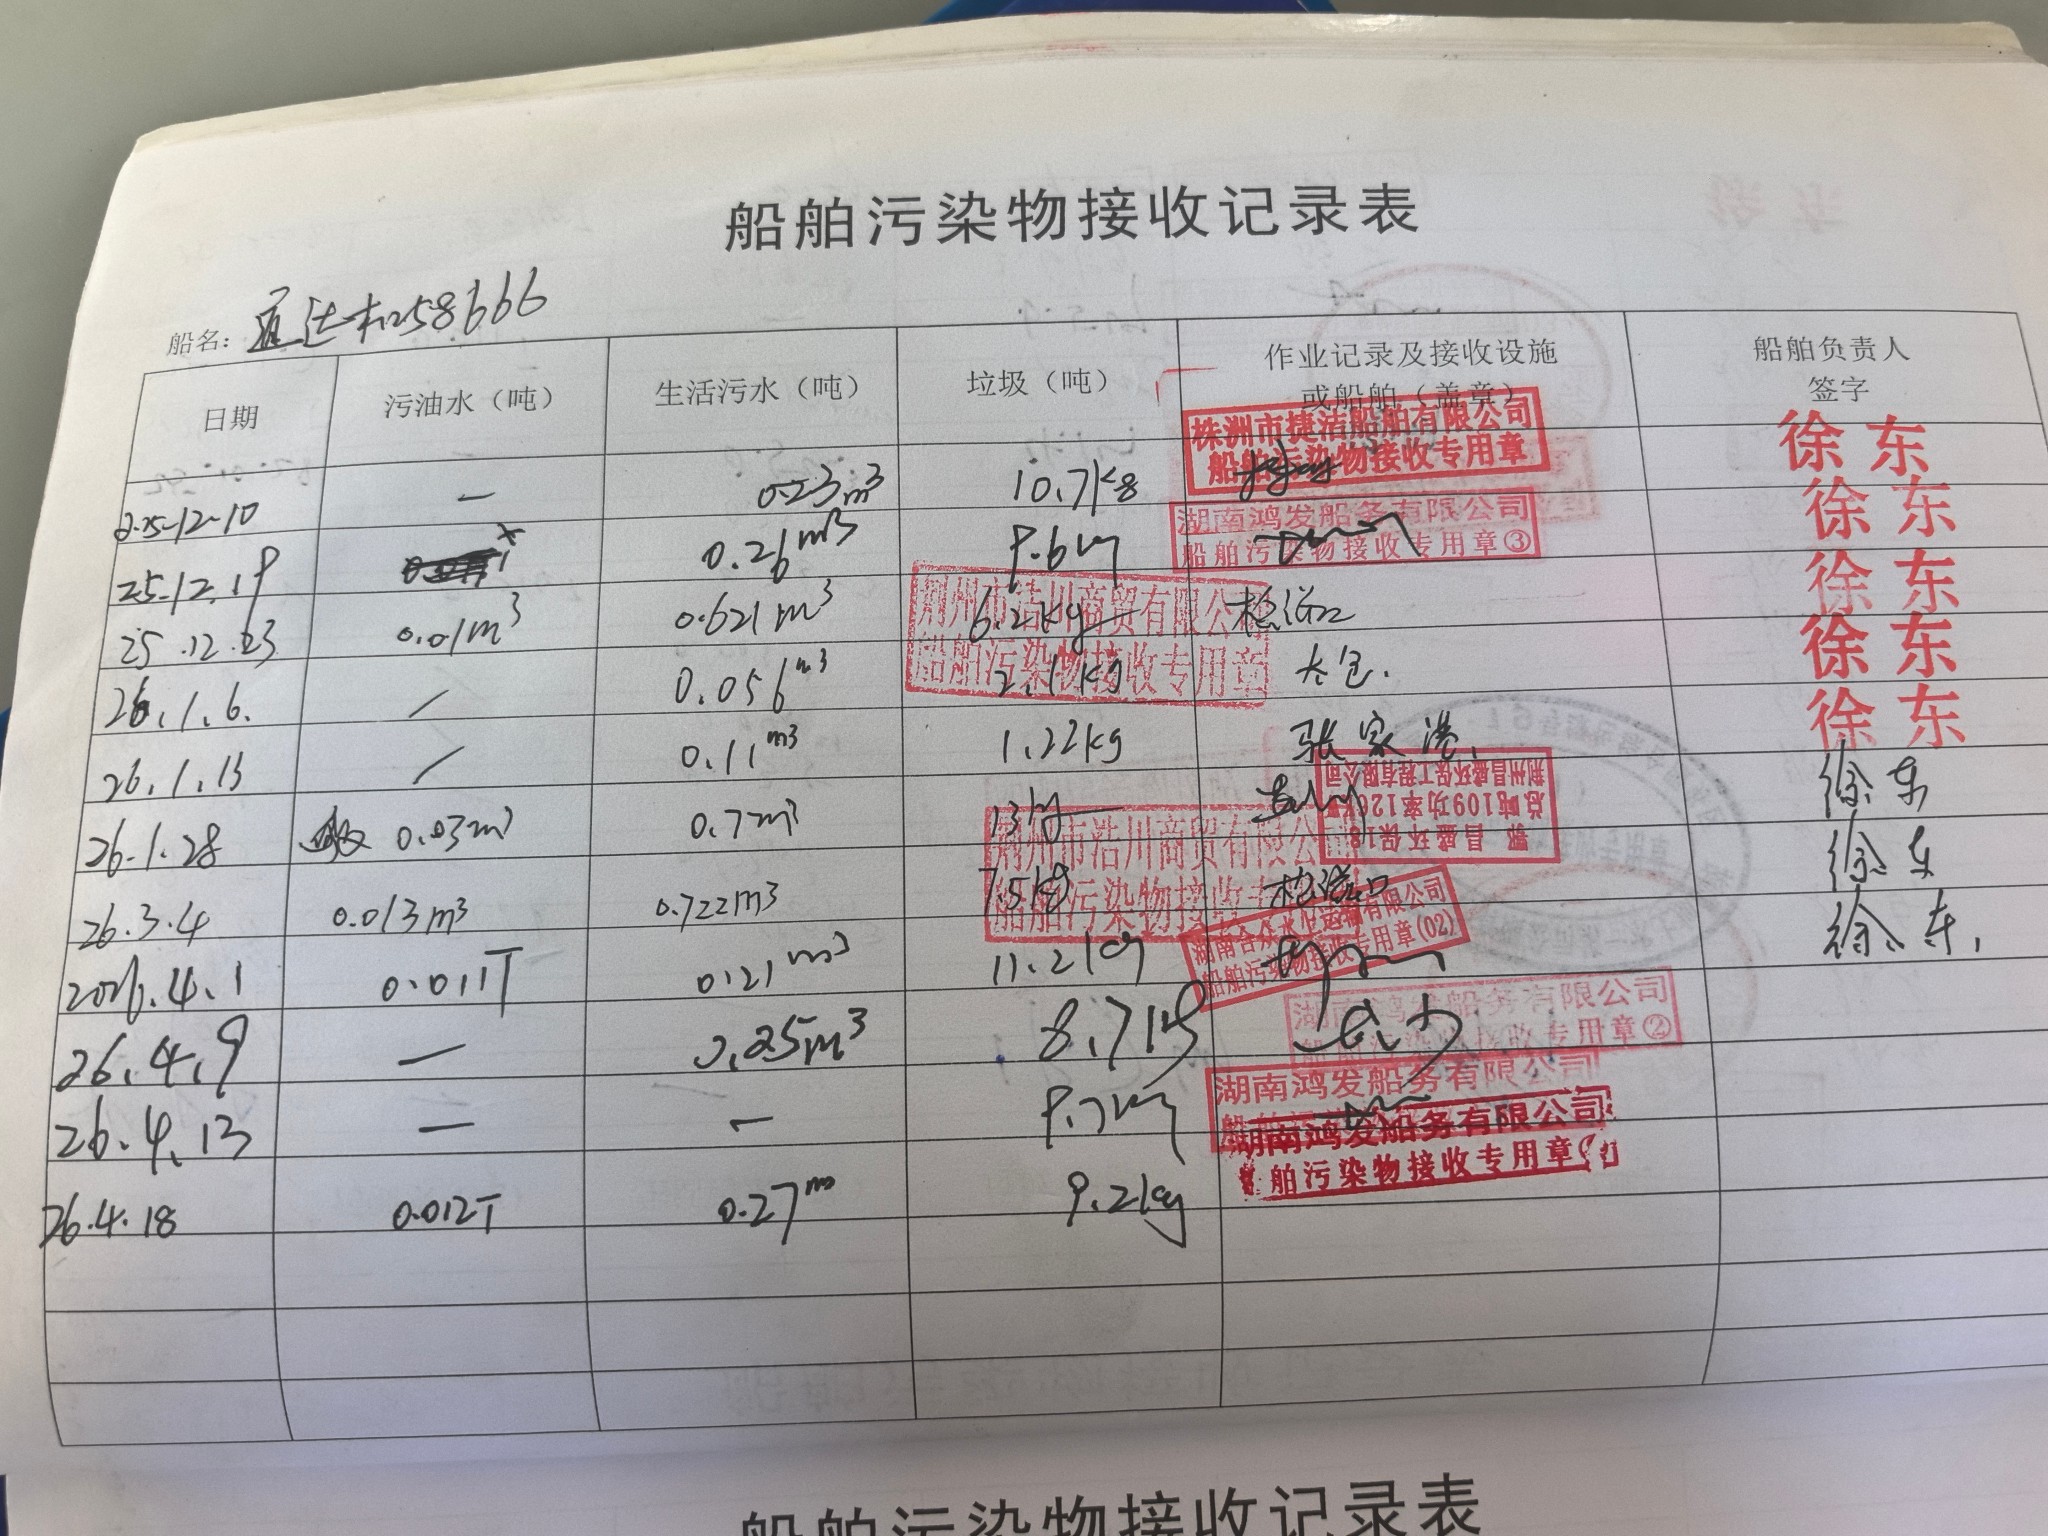 船舶污染物接收记录表
船名: 258666
日期 污油水（吨） 生活污水（吨） 垃圾（吨） 作业记录及接收设施或船舶（盖章） 船舶负责人签字
2025-12-10 — 0.23m³ 10.7kg 株洲市捷洁船舶有限公司 船舶污染物接收专用章 徐东
25.12.19 0.26m³ 9.6kg 湖南鸿发船务有限公司 船舶污染物接收专用章③ 徐东
25.12.23 0.01m³ 0.621m³ 6.2kg 荆州市浩川商贸有限公 船舶污染物接收专用章 徐东
26.1.6. / 0.056m³ 2.1kg 太仓. 徐东
26.1.13 / 0.11m³ 1.22kg 张家港. 徐东
26.1.28 0.03m³ 0.7m³ 13kg 鄂昌盛环保18 总吨109功率126 荆州昌盛环保工程有限公司 徐东
26.3.4 0.013m³ 0.722m³ 7.5kg 荆州市浩川商贸有限公 船舶污染物接收专 徐东
2026.4.1 0.011T 0.21m³ 11.2kg 湖南合众水上运输有限公司 船舶污染物接收专用章(02) 徐东.
26.4.9 — 0.25m³ 8.7kg 湖南鸿发船务有限公司 船舶污染物接收专用章②
26.4.13 — — 9.7kg 湖南鸿发船务有限公司
26.4.18 0.012T 0.27m 9.2kg 湖南鸿发船务有限公司 船舶污染物接收专用章
船舶污染物接收记录表